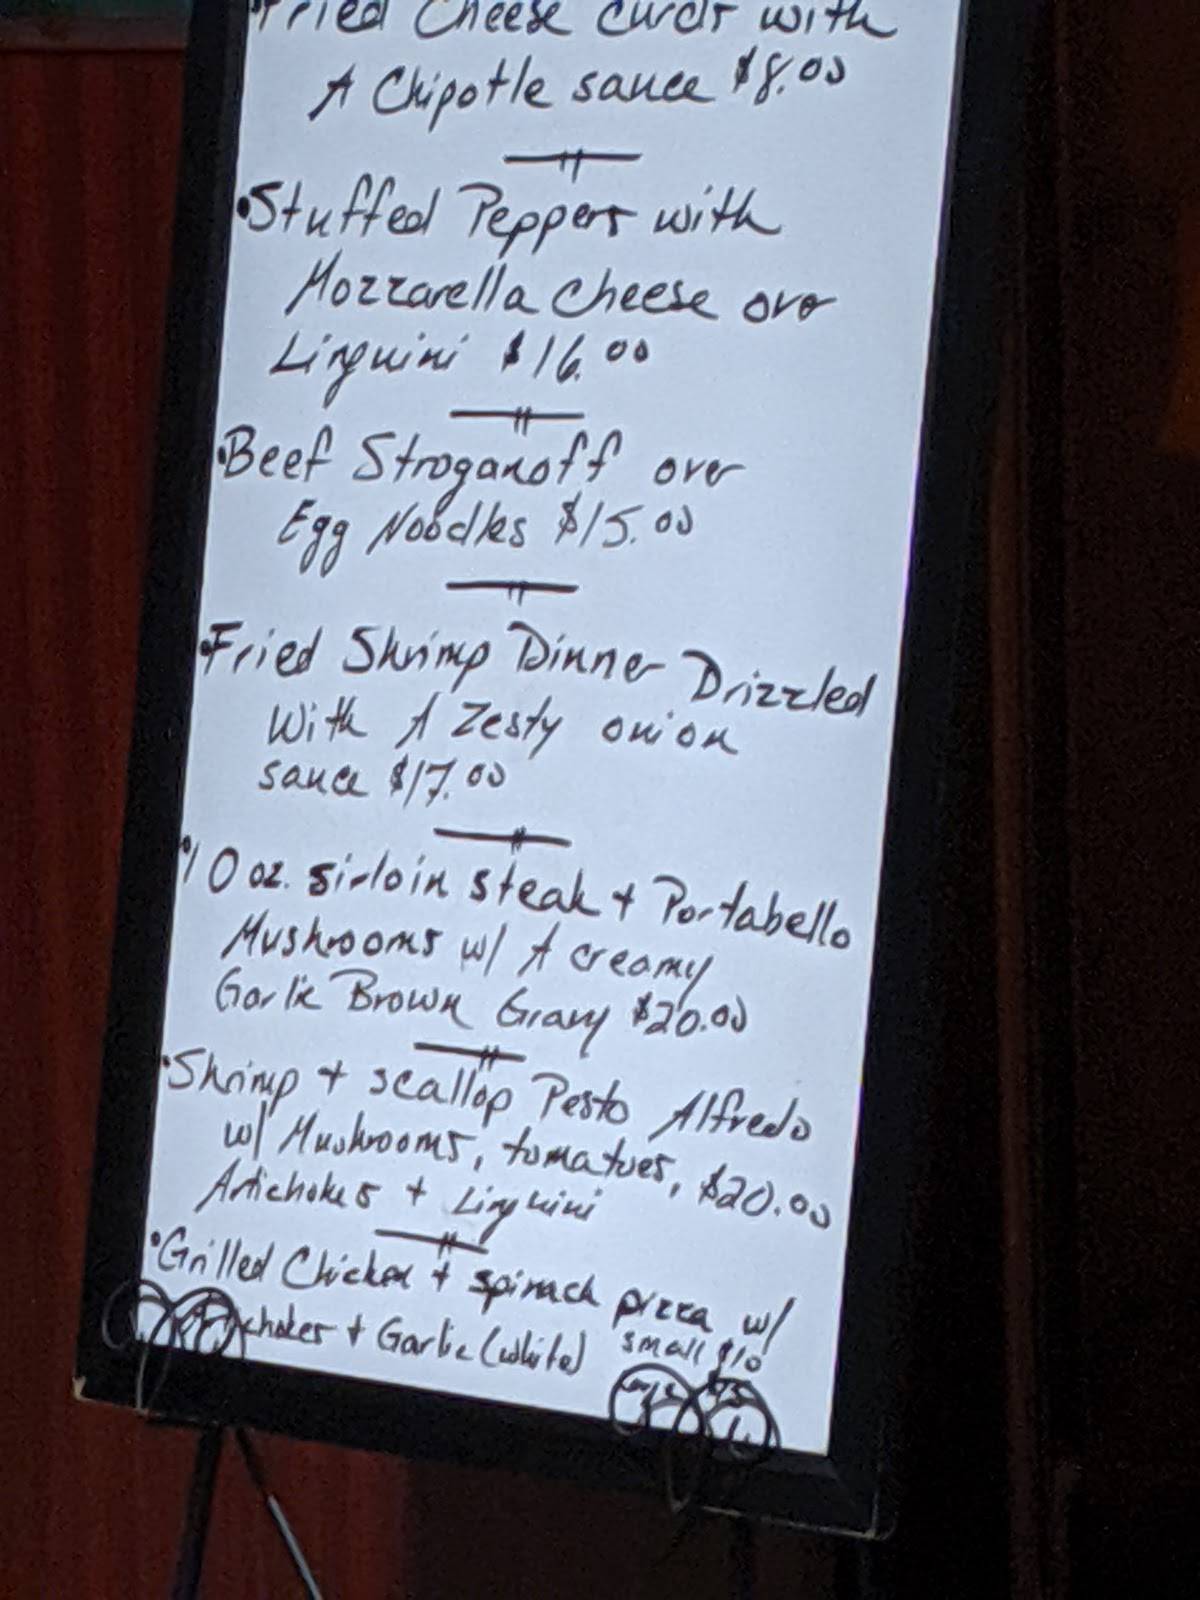 •Fried Cheese Curds with
A Chipotle sauce $8.00
•Stuffed Peppers with
Mozzarella Cheese over
Linguini $16.00
•Beef Stroganoff over
Egg Noodles $15.00
•Fried Shrimp Dinner Drizzled
With A Zesty onion
sauce $17.00
•10 oz. sirloin steak + Portabello
Mushrooms w/ A creamy
Garlic Brown Gravy $20.00
•Shrimp + scallop Pesto Alfredo
w/ Mushrooms, tomatoes, $20.00
Artichokes + Linguini
•Grilled Chicken + spinach pizza w/
Artichokes + Garlic (white) small $10